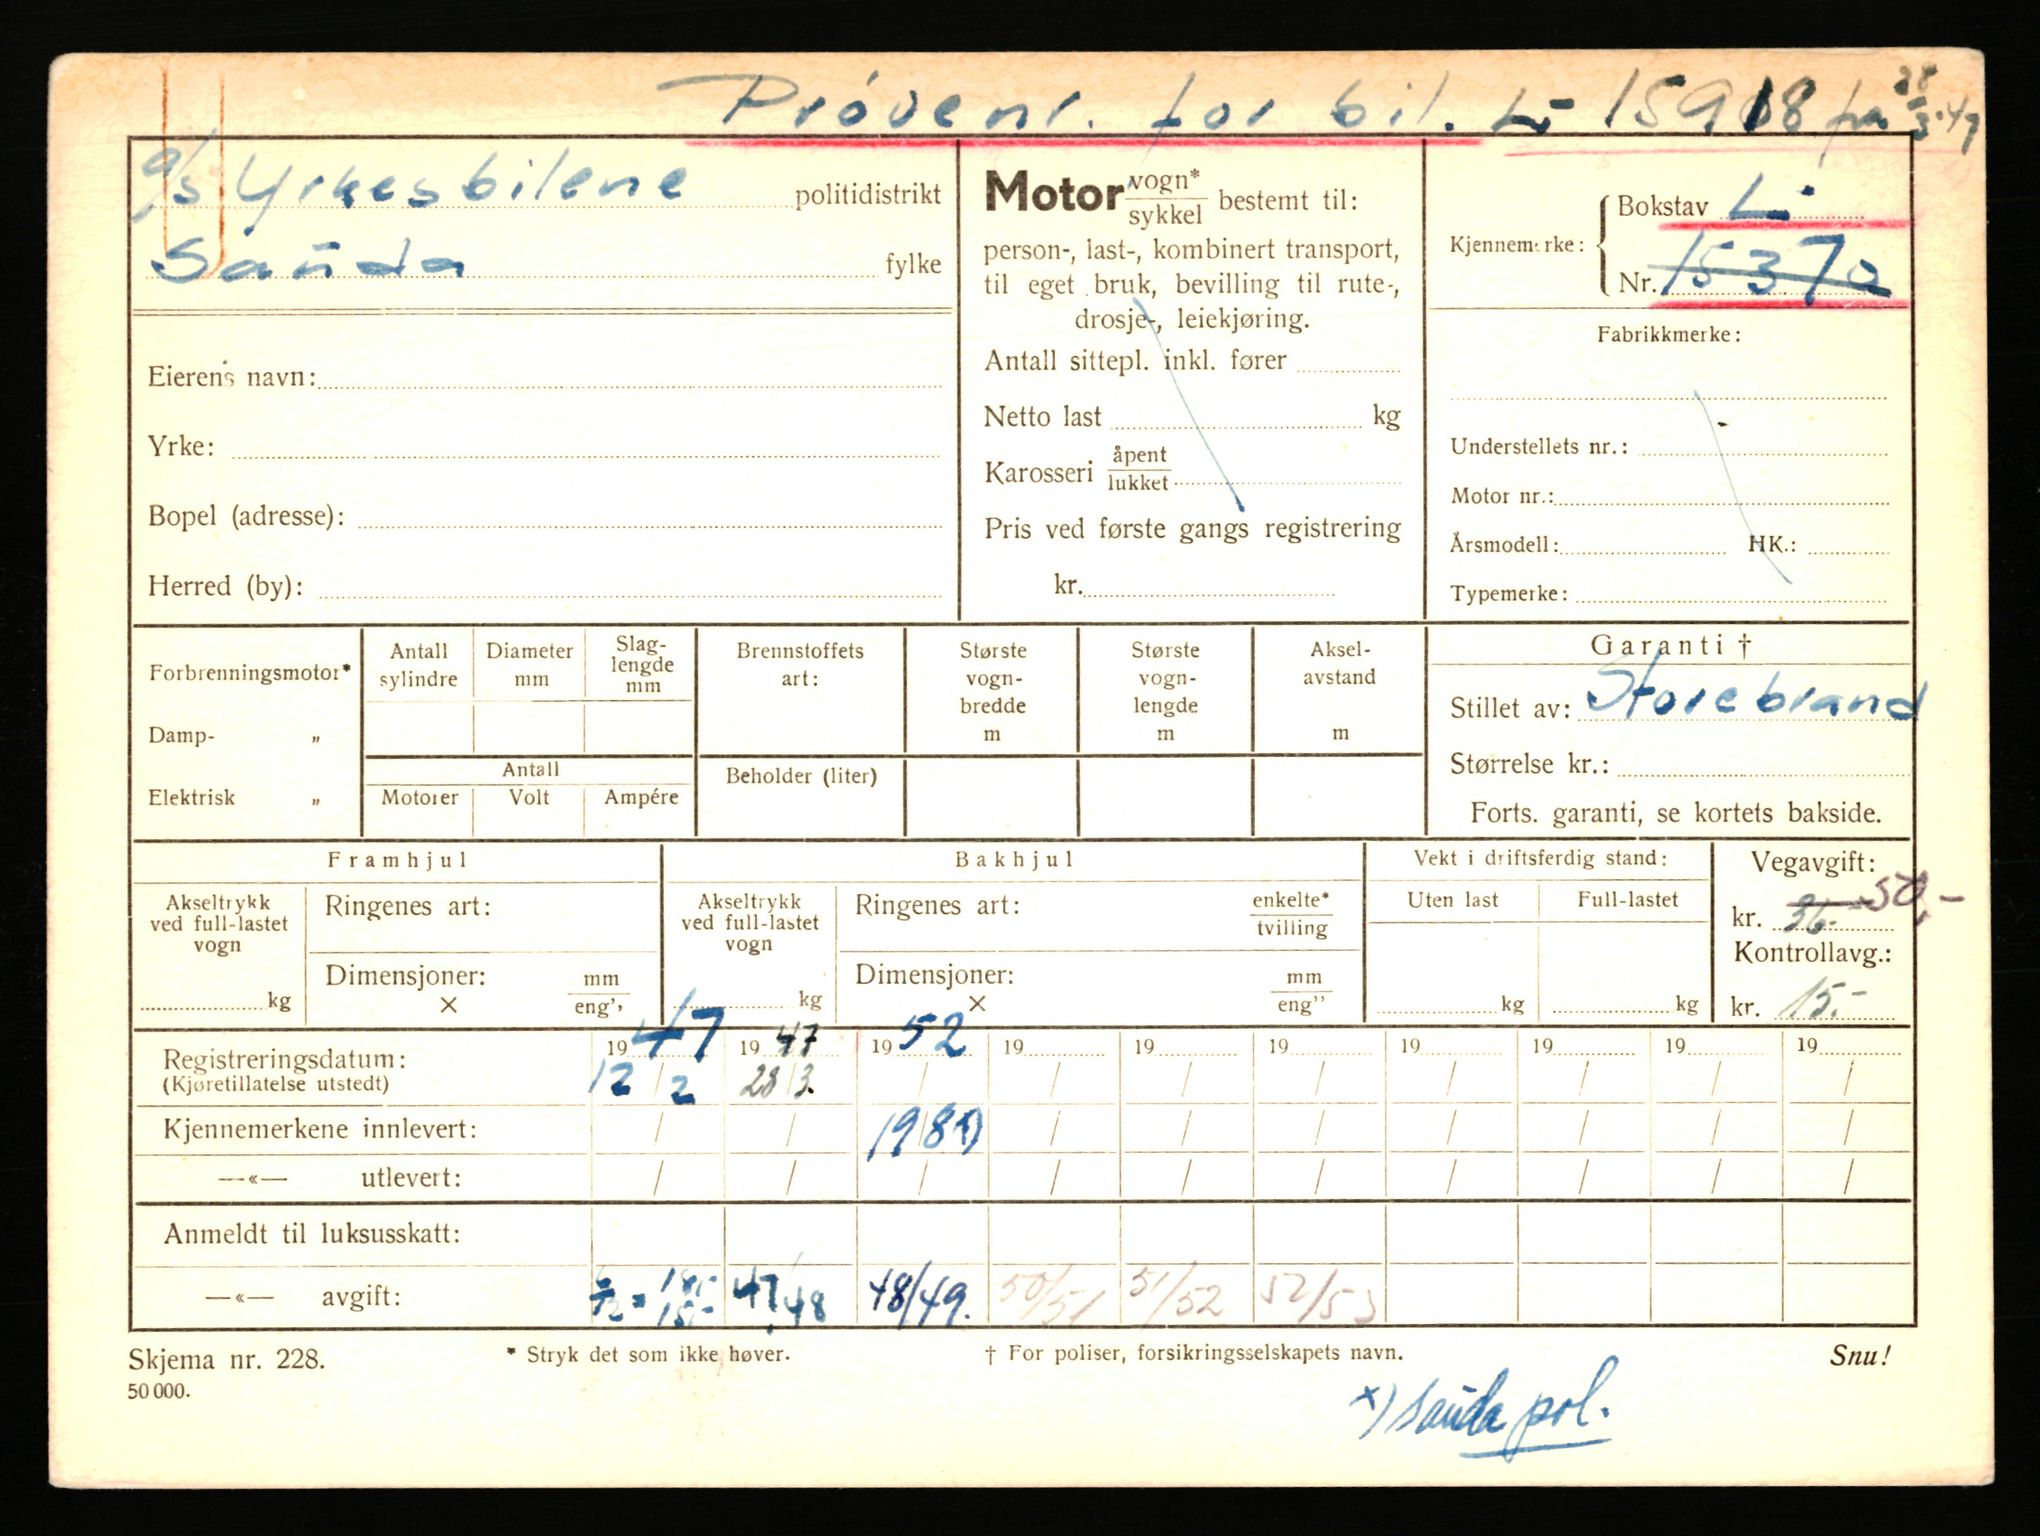 Prövenr. for bil. L- 15918 fra 28/3.47
a/s Yrkesbilene politidistrikt
Sauda fylke
Eierens navn:
Yrke:
Bopel (adresse):
Herred (by):
Motor vogn*/sykkel bestemt til:
person-, last-, kombinert transport,
til eget bruk, bevilling til rute-,
drosje-, leiekjøring.
Antall sittepl. inkl. fører
Netto last kg
Karosseri åpent/lukket
Pris ved første gangs registrering
kr.
Kjennemerke: Bokstav L-
Nr. 15370
Fabrikkmerke:
Understellets nr.:
Motor nr.:
Årsmodell: HK.:
Typemerke:
Forbrenningsmotor*
Damp- „
Elektrisk „
Antall sylindre
Diameter mm
Slag-
lengde
mm
Antall
Motorer Volt Ampére
Brennstoffets
art:
Beholder (liter)
Største
vogn-
bredde
m
Største
vogn-
lengde
m
Aksel-
avstand
m
Garanti †
Stillet av: Storebrand
Størrelse kr.:
Forts. garanti, se kortets bakside.
Framhjul
Akseltrykk
ved full-lastet
vogn
kg
Ringenes art:
Dimensjoner: mm/eng'’
×
Bakhjul
Akseltrykk
ved full-lastet
vogn
kg
Ringenes art: enkelte*/tvilling
Dimensjoner: mm/eng’’
×
Vekt i driftsferdig stand:
Uten last Full-lastet
kg kg
Vegavgift:
kr. 36.- 50,-
Kontrollavg.:
kr. 15.-
Registreringsdatum: 19 47 19 47 19 52 19 19 19 19 19 19 19
(Kjøretillatelse utstedt) 12/2 28/3. / / / / / / / /
Kjennemerkene innlevert: / / 19/8 x) / / / / / / /
—«— utlevert: / / / / / / / / / /
Anmeldt til luksusskatt:
—«— avgift: 18,- 15,- 47/48 48/49. 50/51 51/52 52/53
Skjema nr. 228. * Stryk det som ikke høver. † For poliser, forsikringsselskapets navn. Snu!
50 000.
x) Sauda pol.